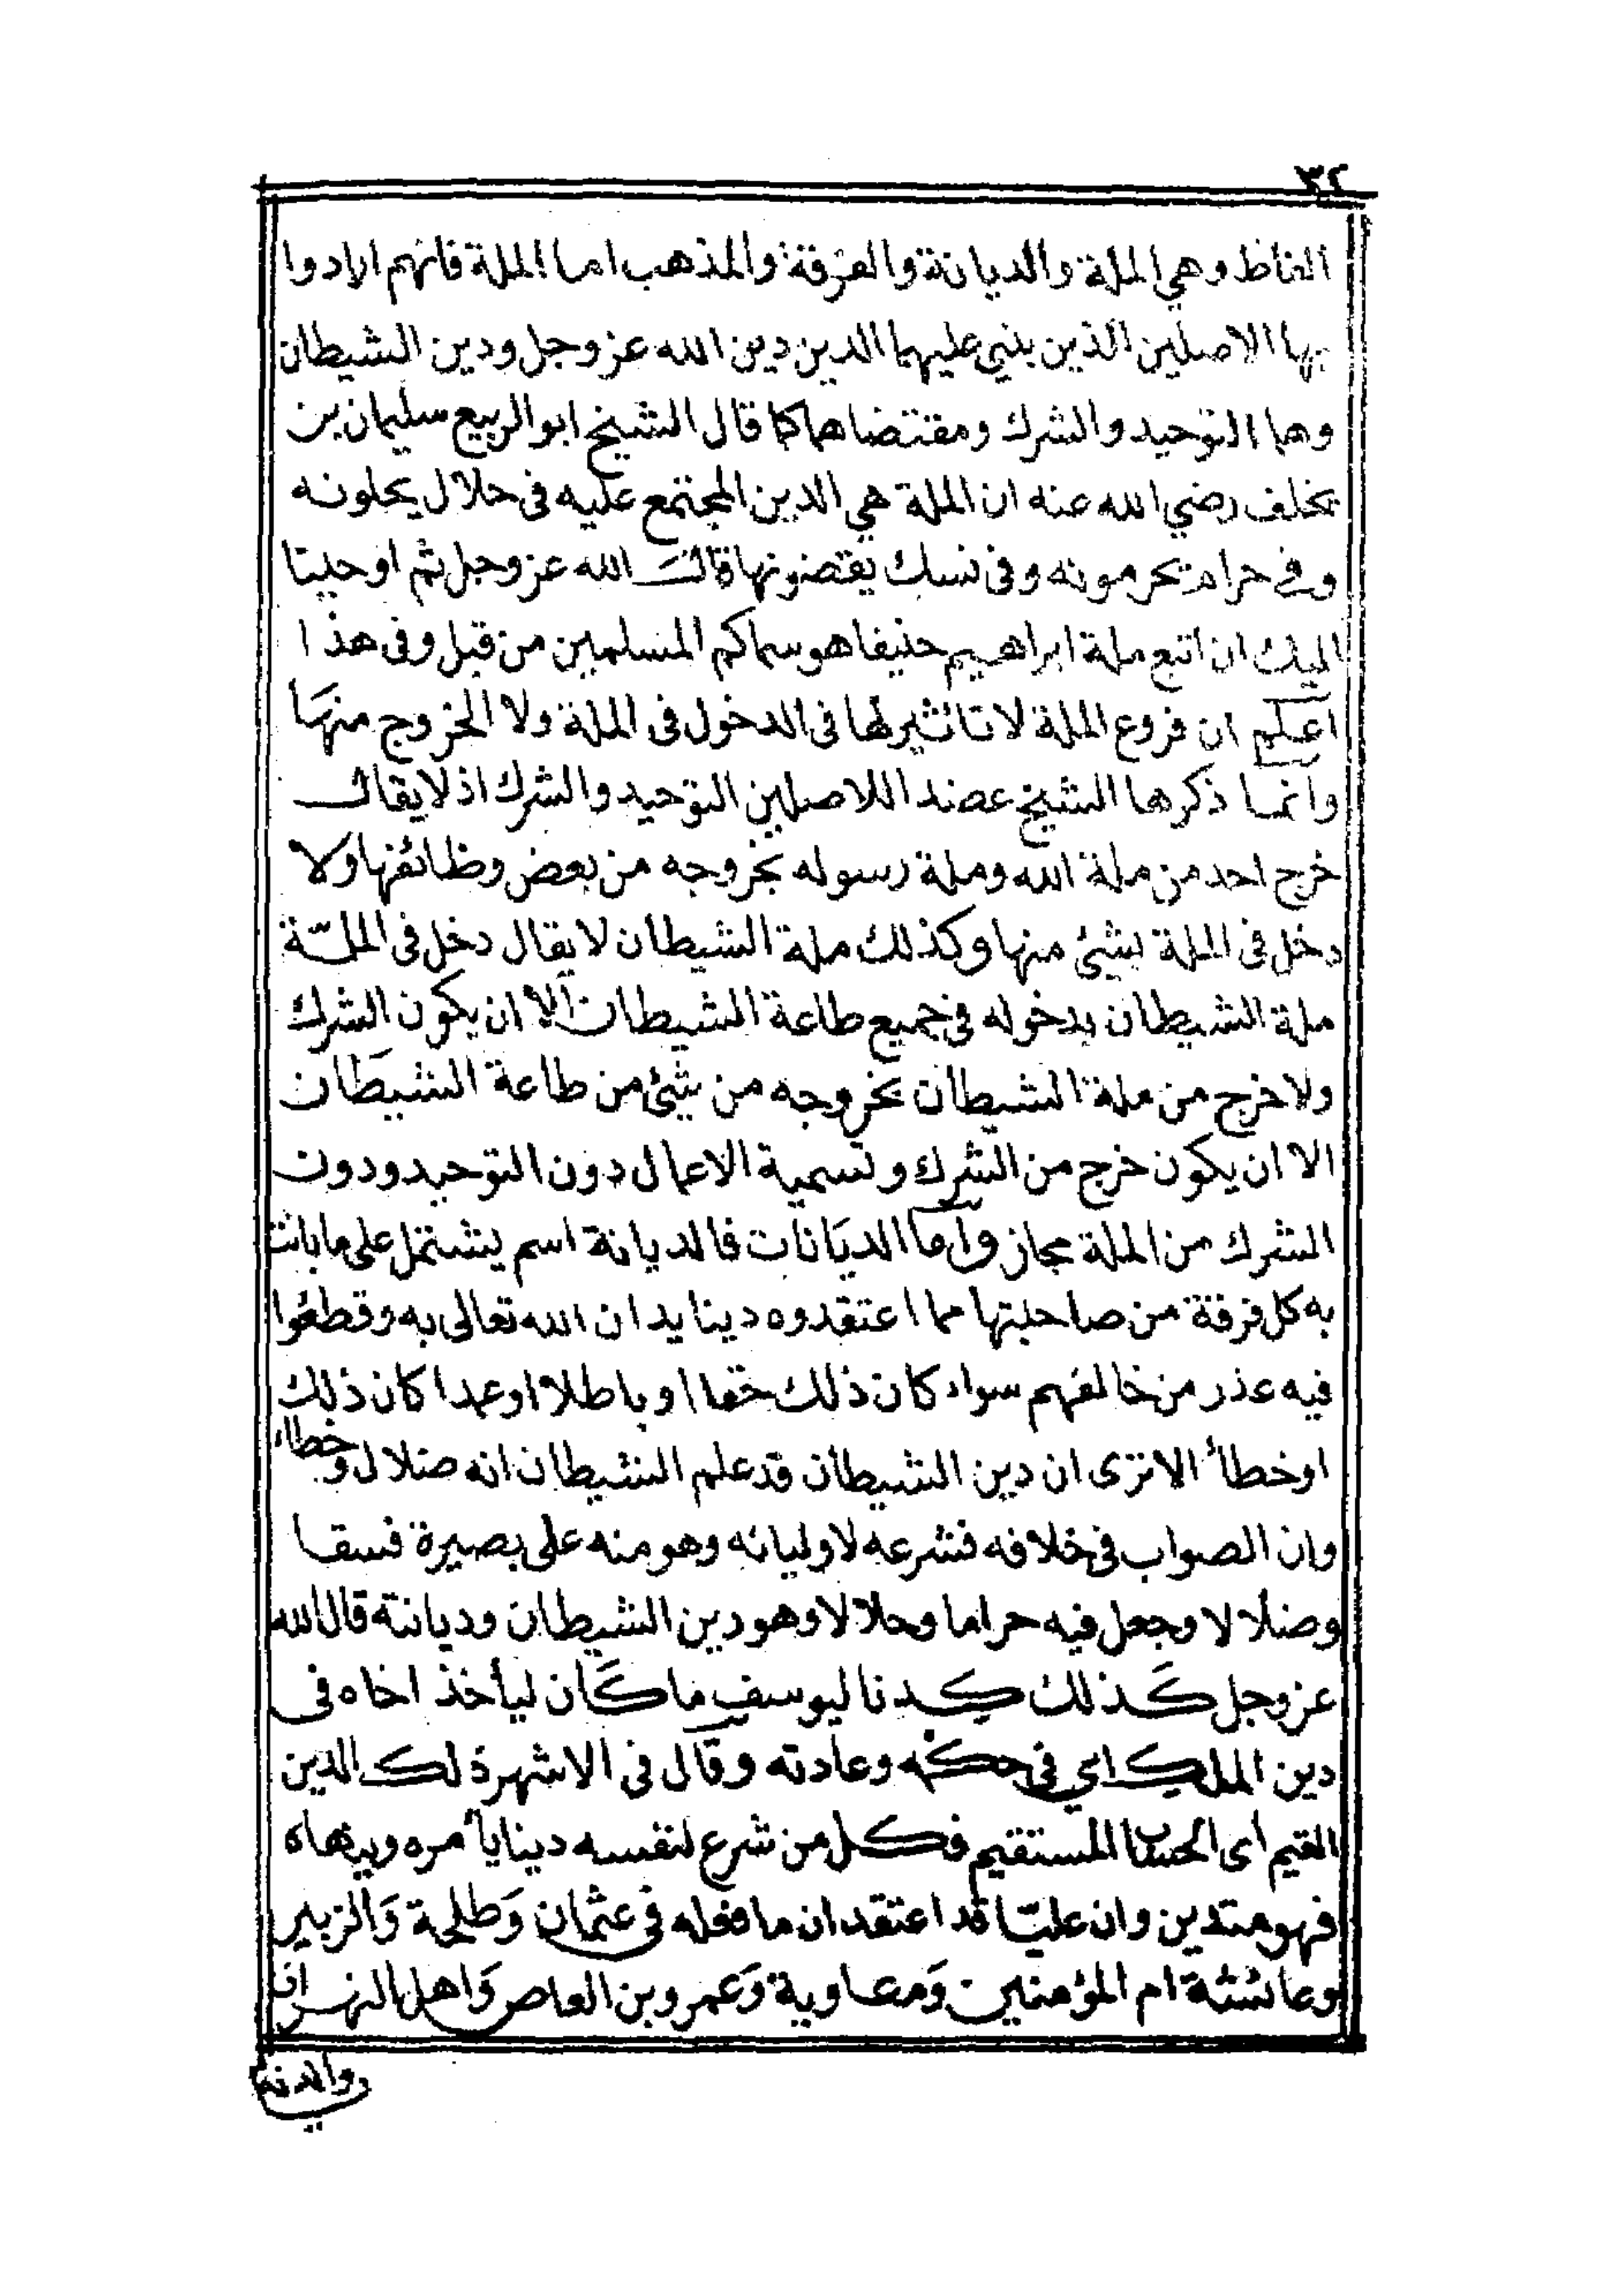 ٣٢
الفاظ وهي الملة والديانة والفرقة والمذهب اما الملة فانهم ارادوا
بها الاصلين الذين بني عليهما الدين دين الله عز وجل ودين الشيطان
وهما التوحيد والشرك ومقتضاهما كما قال الشيخ ابو الربيع سليمان بن
يخلف رضي الله عنه ان الملة هي الدين المجتمع عليه فى حلال يحلونه
وفي حرام يحرمونه وفى نسك يقضونها قال الله عز وجل ثم اوحينا
اليك ان اتبع ملة ابراهيم حنيفا هو سماكم المسلمين من قبل وفى هذا
اعلم ان فروع الملة لا تاثير لها فى الدخول فى الملة ولا الخروج منها
وانما ذكرها الشيخ عضدا للاصلين التوحيد والشرك اذ لا يقال
خرج احد من ملة الله وملة رسوله بخروجه من بعض وظائفها ولا
دخل فى الملة بشئ منها وكذلك ملة الشيطان لا يقال دخل فى الملّة
ملة الشيطان بدخوله في جميع طاعة الشيطان الا ان يكون الشرك
ولا خرج من ملة الشيطان بخروجه من شئ من طاعة الشيطان
الا ان يكون خرج من الشرك وتسمية الاعمال دون التوحيد ودون
الشرك من الملة مجاز واما الديانات فالديانة اسم يشتمل على ما بانت
به كل فرقة من صاحبتها مما اعتقدوه دينا يدان الله تعالى به وقطعوا
فيه عذر من خالفهم سواء كان ذلك حقا او باطلا او عمدا كان ذلك
او خطأ الا ترى ان دين الشيطان قد علم الشيطان انه ضلال وخطاء
وان الصواب فى خلافه فشرعه لاوليائه وهو منه على بصيرة فسقا
وضلالا وجعل فيه حراما وحلالا وهو دين الشيطان وديانته قال الله
عز وجل كذلك كدنا ليوسف ما كان ليأخذ اخاه فى
دين الملك اي فى حكمه وعادته وقال فى الاشهر ذلك الدين
القيم اى الحساب المستقيم فكل من شرع لنفسه دينا يأمره وينهاه
فهو متدين وان عليّا قد اعتقد ان ما فعله فى عثمان وَطلحة وَالزبير
وعائشة ام المؤمنين وَمعاوية وَعمرو بن العاص وَاهل النهروان